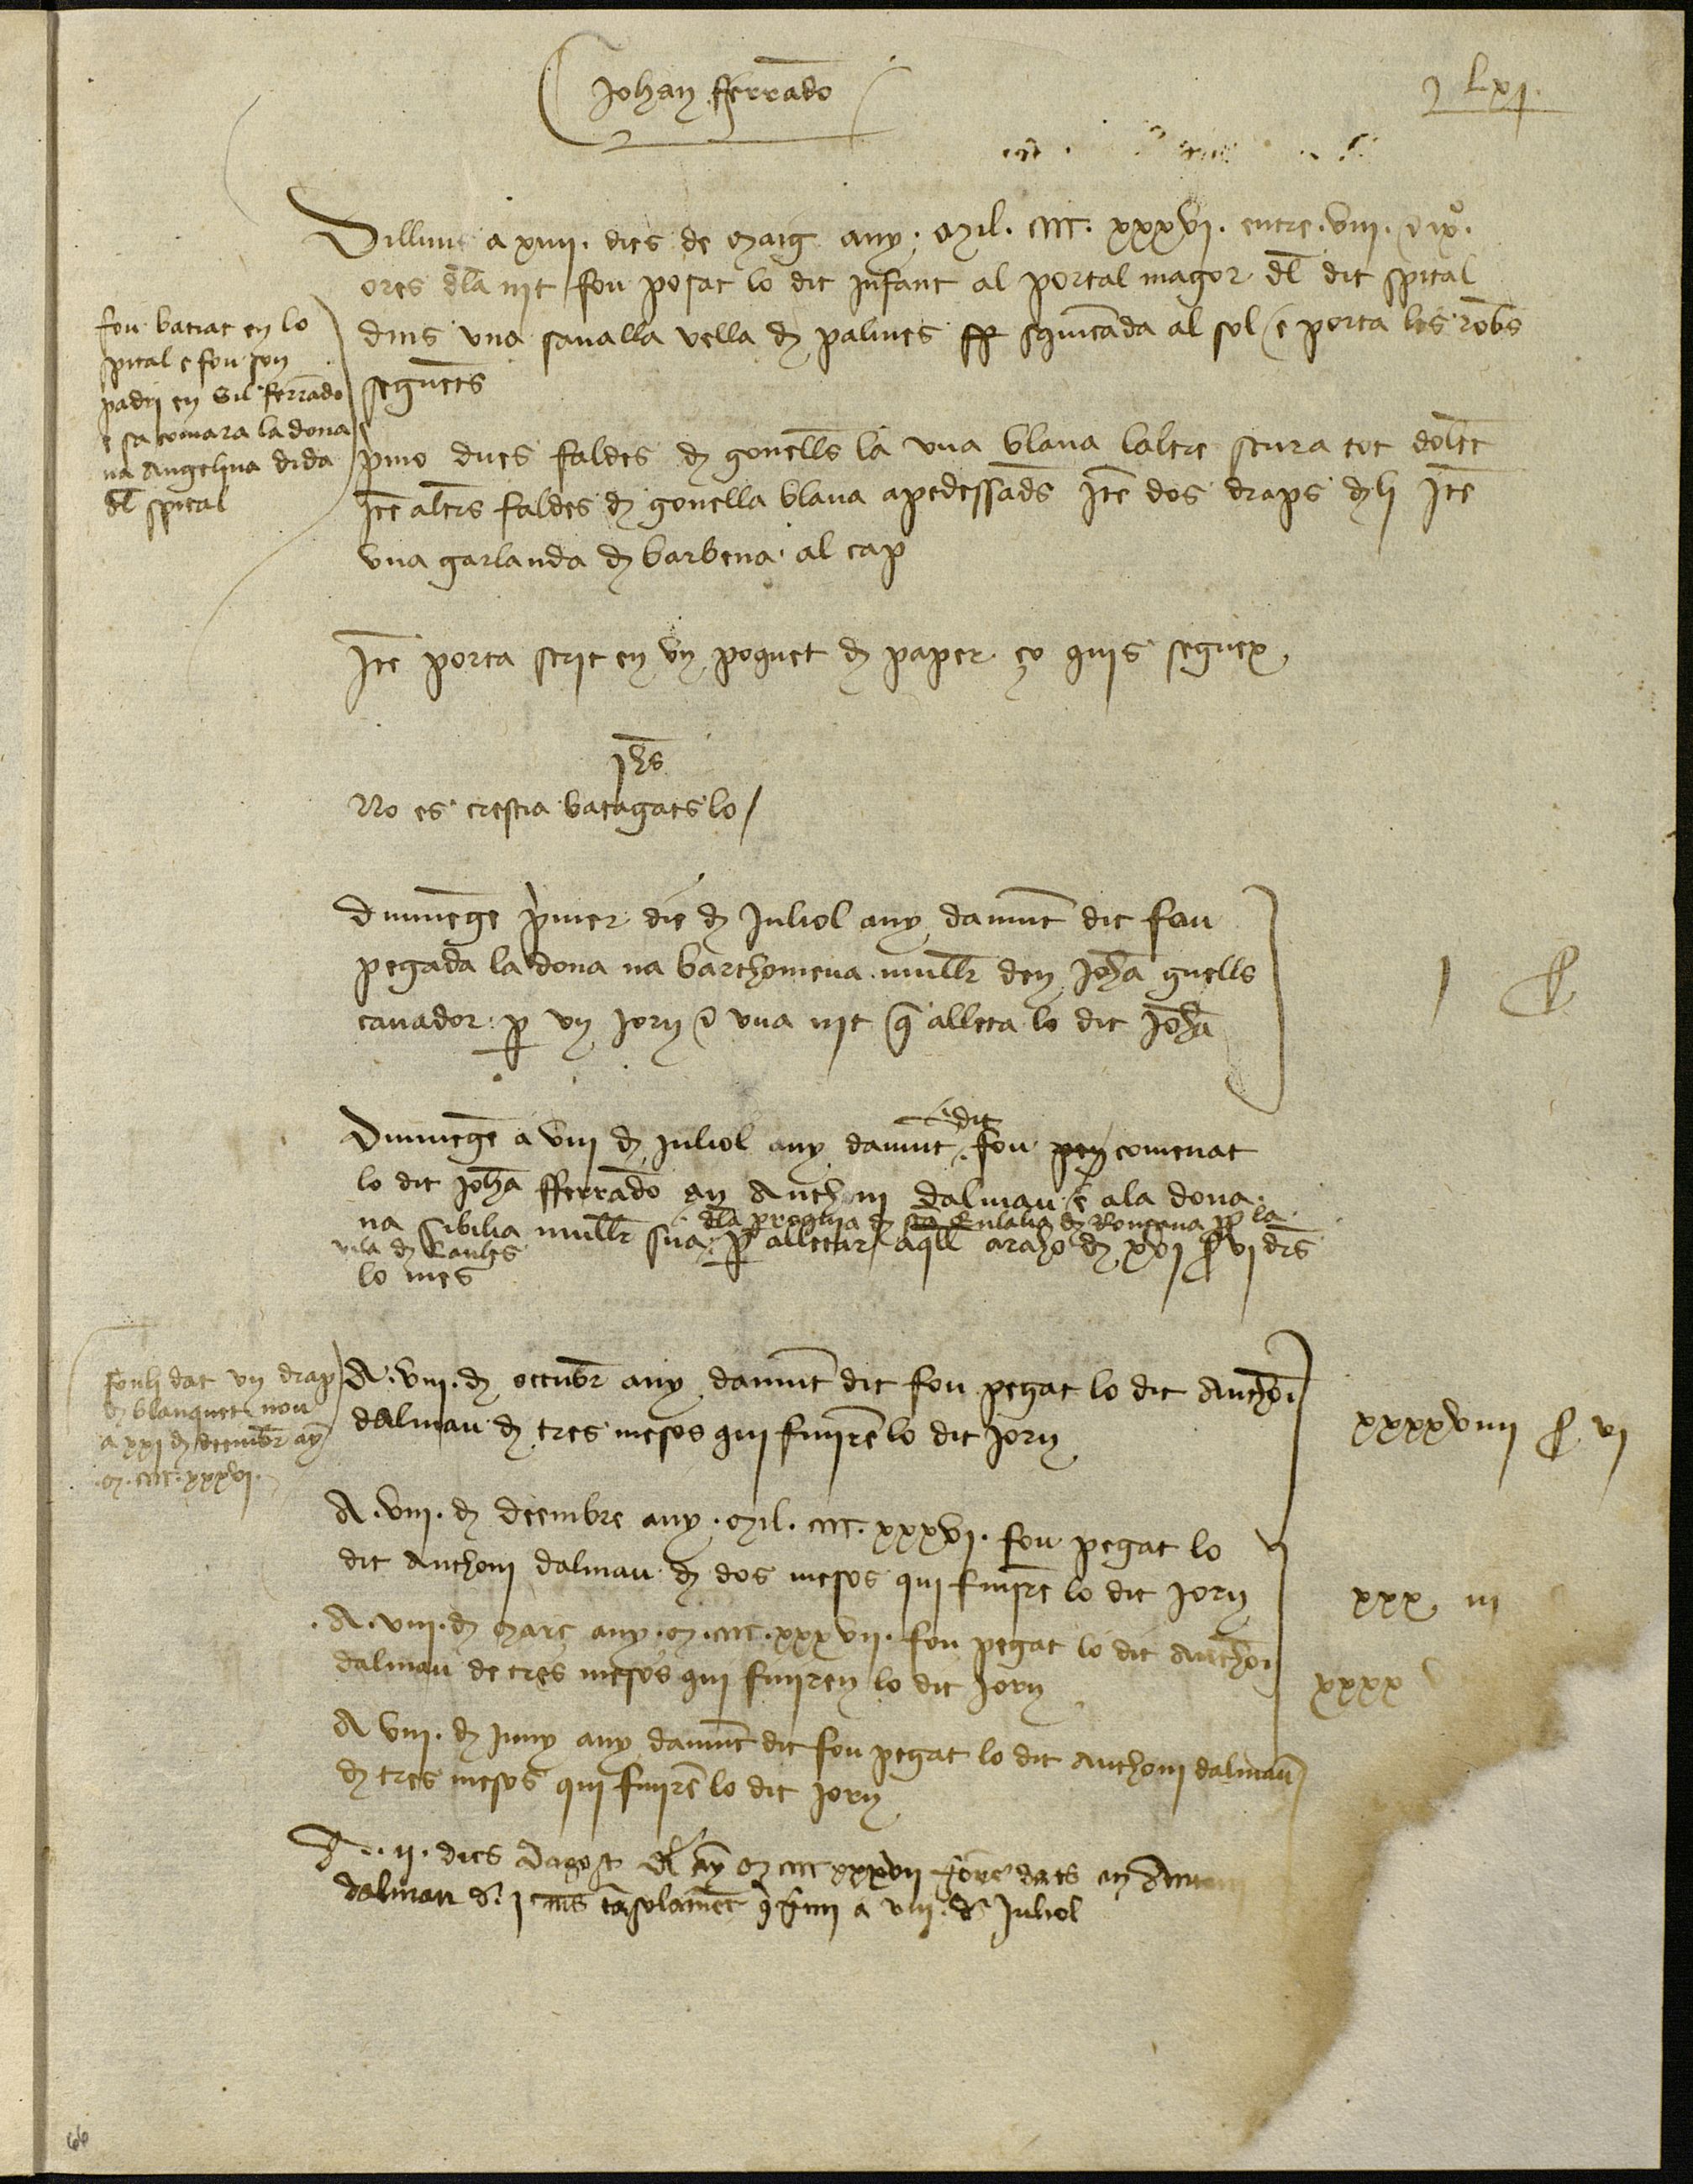 Johan fferrado
Lxj
Dilluns a xiiii. dies de Maig any. Mil. CCCC. xxxvi. entre. viii. e ix.
ores dla nit fou posat lo dit infant al portal major dl dit spital
dins una savalla vella d palmes squinçada al sol e porta les robs
seguets
fou batiat en lo
spital e fou son
padri en Gil fferrado
e sa comara la dona
na Angelina dida
dl spital
pmo dues faldes d gonells la una blava laltre scura tot dolet
Ite altrs faldes d gonella blava apedessads Ite dos draps d li Ite
una garlanda d barbena al cap
Ite porta scrit en un poquet d paper ço quis seguex
Jhs
No es crestia batagats lo
Dimmege pimer die d Juliol any damut dit fou
pegada la dona na barthomeua mullr den Joha guells
cavador p un jorn e una nit q alleta lo dit Joha
I s
Dimmege a viii d Juliol any damut dit fou comenat
lo dit Joha fferrado an Anthoni dalmau e a la dona
na Sibilia mullr sua dla proquia d sta Eulalia d Ronçana p la
vila d Caules p alletar aqll a raho d xvi s vi drs
lo mes
fouli dat un drap
d blanquet nou
a xxi d deembr ay
M. CCCC. xxxvi.
A. viii. d octubr any damut dit fou pegat lo dit Anthoi
dalmau d tres mesos qui finire lo dit jorn
xxxxviiii s vi
A. viii. d deembre any. Mil. CCCC. xxxvi. fou pegat lo
dit Anthoni dalmau d dos mesos qui finire lo dit jorn
xxx iii
A. viii. d Març any. M. CCCC. xxxvii. fou pegat lo dit Anthoi
dalmau de tres mesos qui finiren lo dit jorn
xxxx
A viii. d Juny any damut dit fou pegat lo dit Anthoni dalmau
d tres mesos qui finire lo dit jorn
A. ii. dies dagost dl ay M CCCC xxxvii fore dats an
dalmau d. i mes ta solamet q fini a viii. d Juliol
66